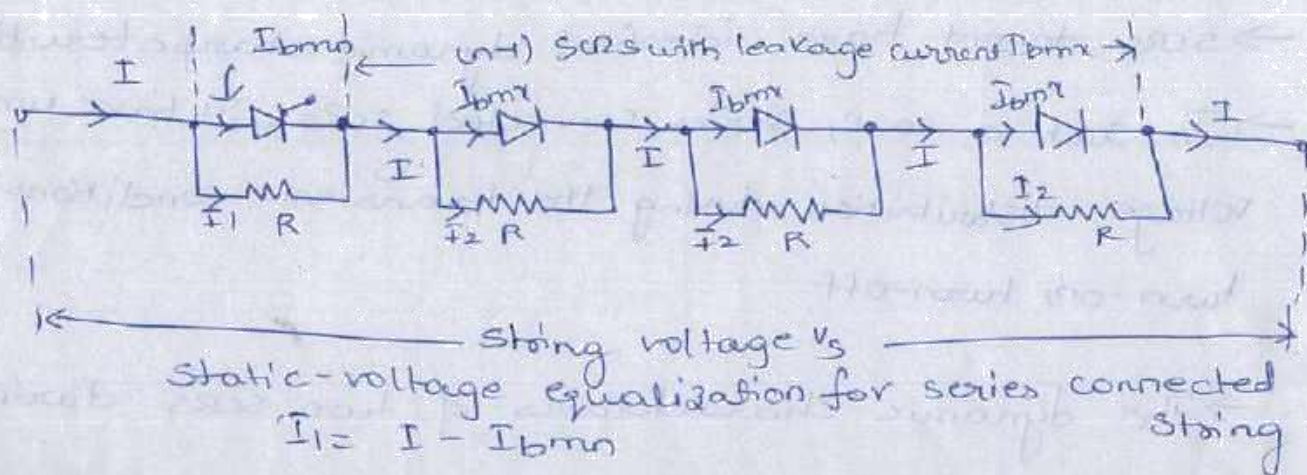 Ibmn (n-1) SCRs with leakage current Ibmx
I Ibmx Ibmx Ibmx I
I I I
I1 R I2 R I2 R I2 R
String voltage Vs
Static-voltage equalization for series connected
I1 = I - Ibmn String